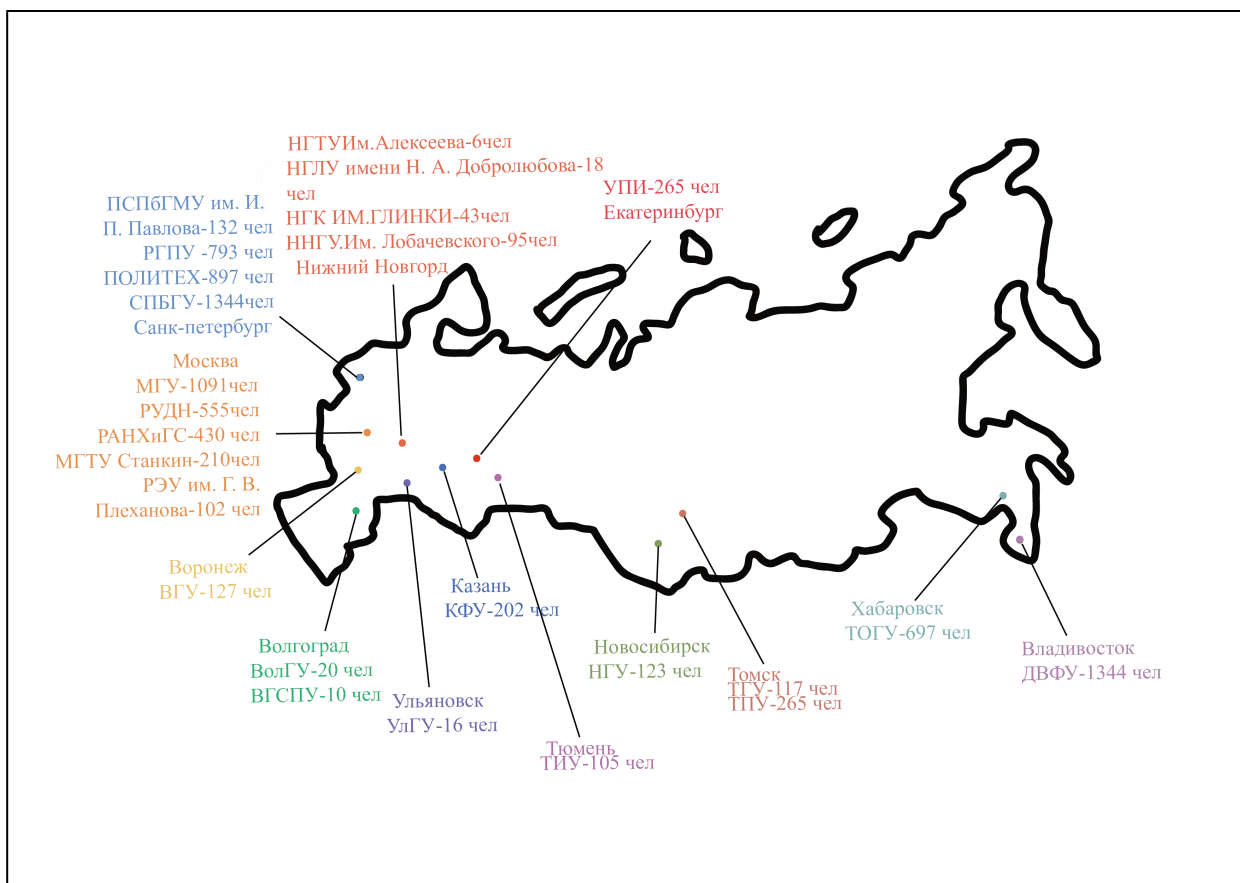 НГТУИм.Алексеева-6чел
НГЛУ имени Н. А. Добролюбова-18
чел
НГК ИМ.ГЛИНКИ-43чел
ННГУ.Им. Лобачевского-95чел
Нижний Новгорд
УПИ-265 чел
Екатеринбург
ПСПбГМУ им. И.
П. Павлова-132 чел
РГПУ -793 чел
ПОЛИТЕХ-897 чел
СПБГУ-1344чел
Санк-петербург
Москва
МГУ-1091чел
РУДН-555чел
РАНХиГС-430 чел
МГТУ Станкин-210чел
РЭУ им. Г. В.
Плеханова-102 чел
Воронеж
ВГУ-127 чел
Волгоград
ВолГУ-20 чел
ВГСПУ-10 чел
Ульяновск
УлГУ-16 чел
Казань
КФУ-202 чел
Тюмень
ТИУ-105 чел
Новосибирск
НГУ-123 чел
Томск
ТГУ-117 чел
ТПУ-265 чел
Хабаровск
ТОГУ-697 чел
Владивосток
ДВФУ-1344 чел